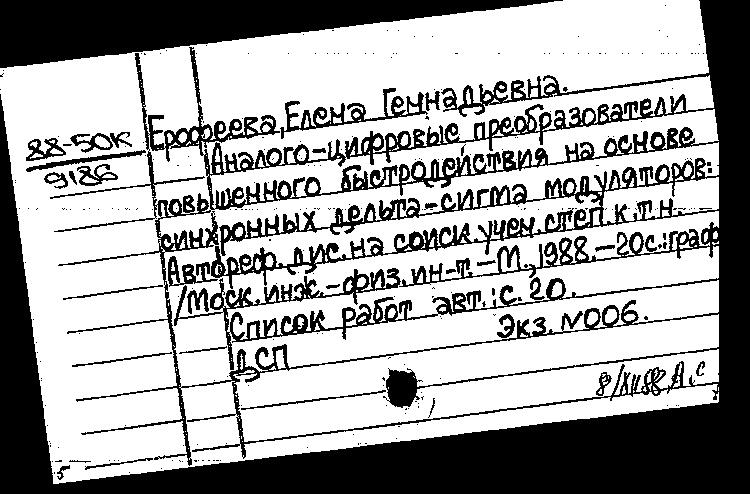 88-50К
9186
Ерофеева, Елена Геннадьевна.
Аналого-цифровые преобразователи
повышенного быстродействия на основе
синхронных дельта-сигма модуляторов:
Автореф. дис. на соиск. учен. степ. к.т.н.
/Моск. инж.-физ. ин-т.-М., 1988.-20с.:граф
Список работ авт.: с. 20.
Экз. №006.
ДСП
8/XII88 А.С
5